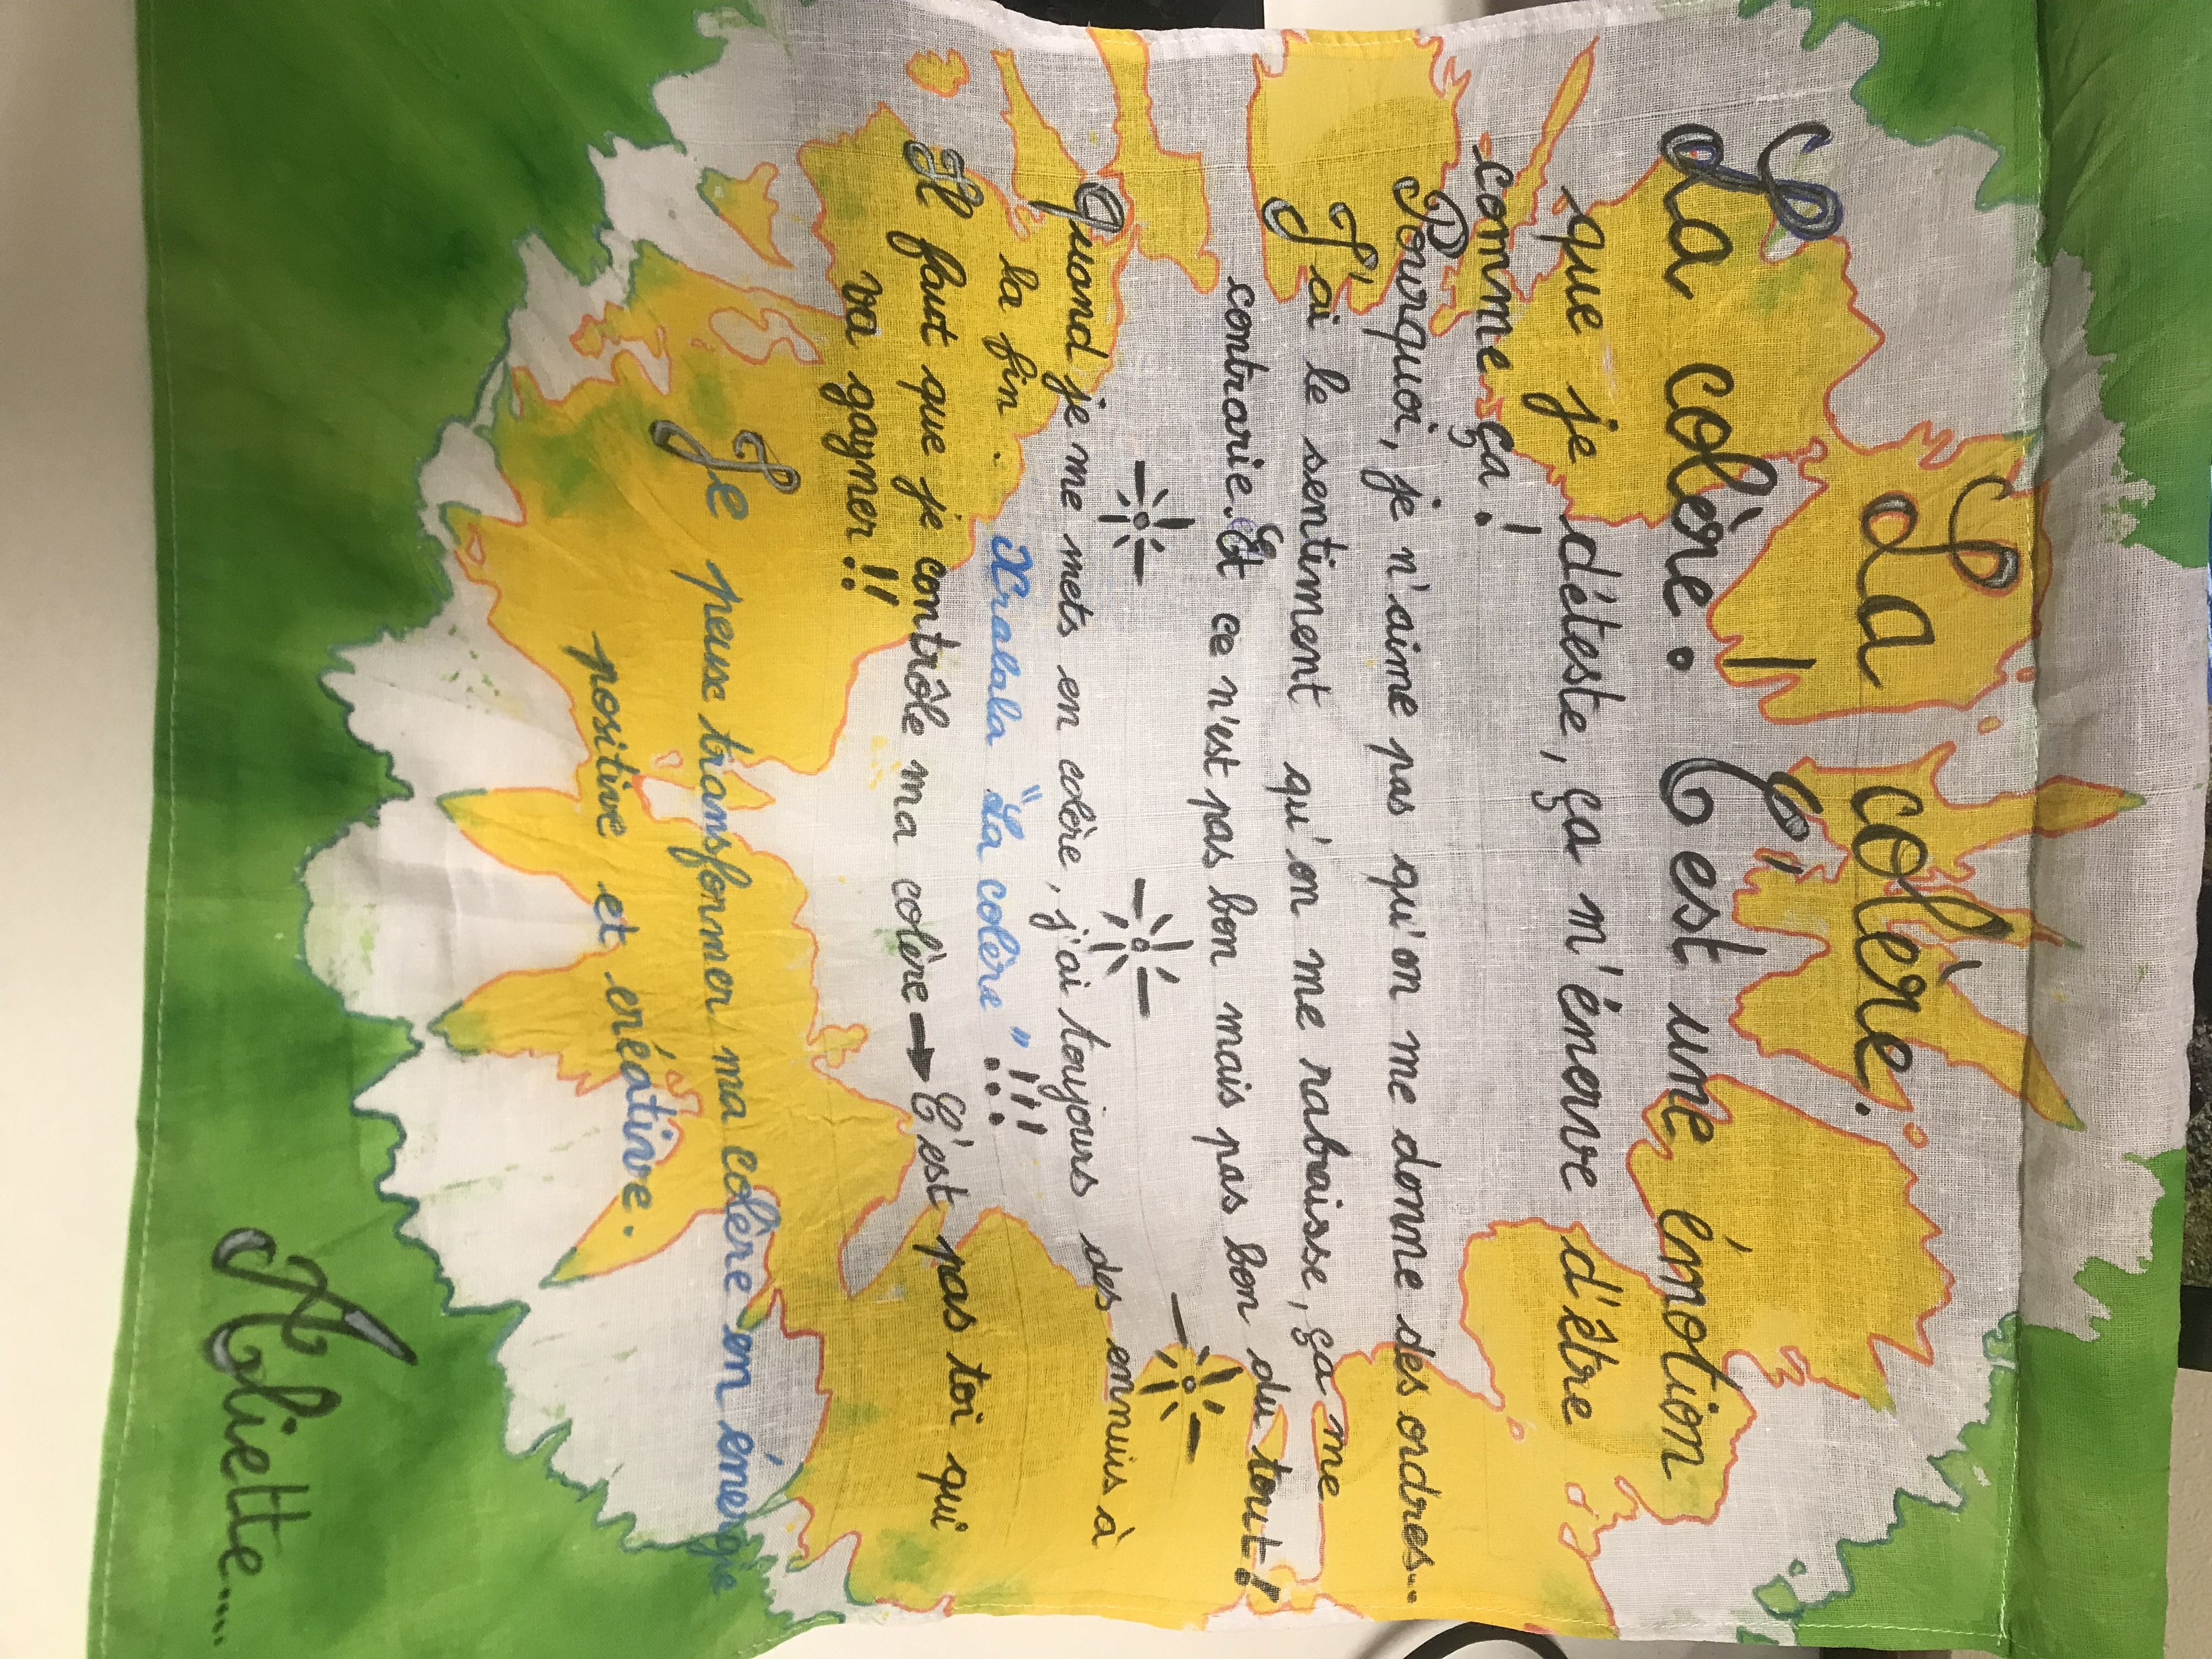 La colère.
La colère : C'est une émotion
que je déteste, ça m'énerve d'être
comme ça !
Pourquoi, je n'aime pas qu'on me donne des ordres...
J'ai le sentiment qu'on me rabaisse, ça me
contrarie. Et ce n'est pas bon mais pas bon du tout !
Quand je me mets en colère, j'ai toujours des ennuis à
la fin. Kralala "La colère" !!!
Il faut que je contrôle ma colère → C'est pas toi qui
va gagner !!
Je peux transformer ma colère en énergie
positive et créative.
Aliette....